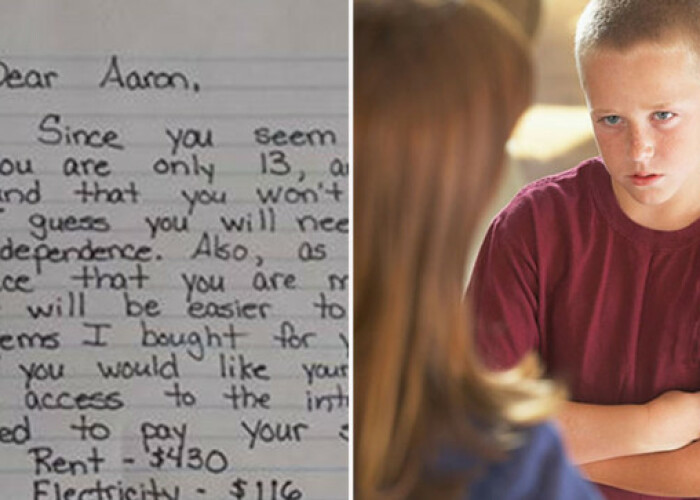 Dear Aaron,
Since you seem
ou are only 13, a
nd that you won't
guess you will nee
dependence. Also, as
ce that you are m
will be easier to
ems I bought for
you would like your
access to the int
ed to pay your s
Rent - $430
Electricity - $116